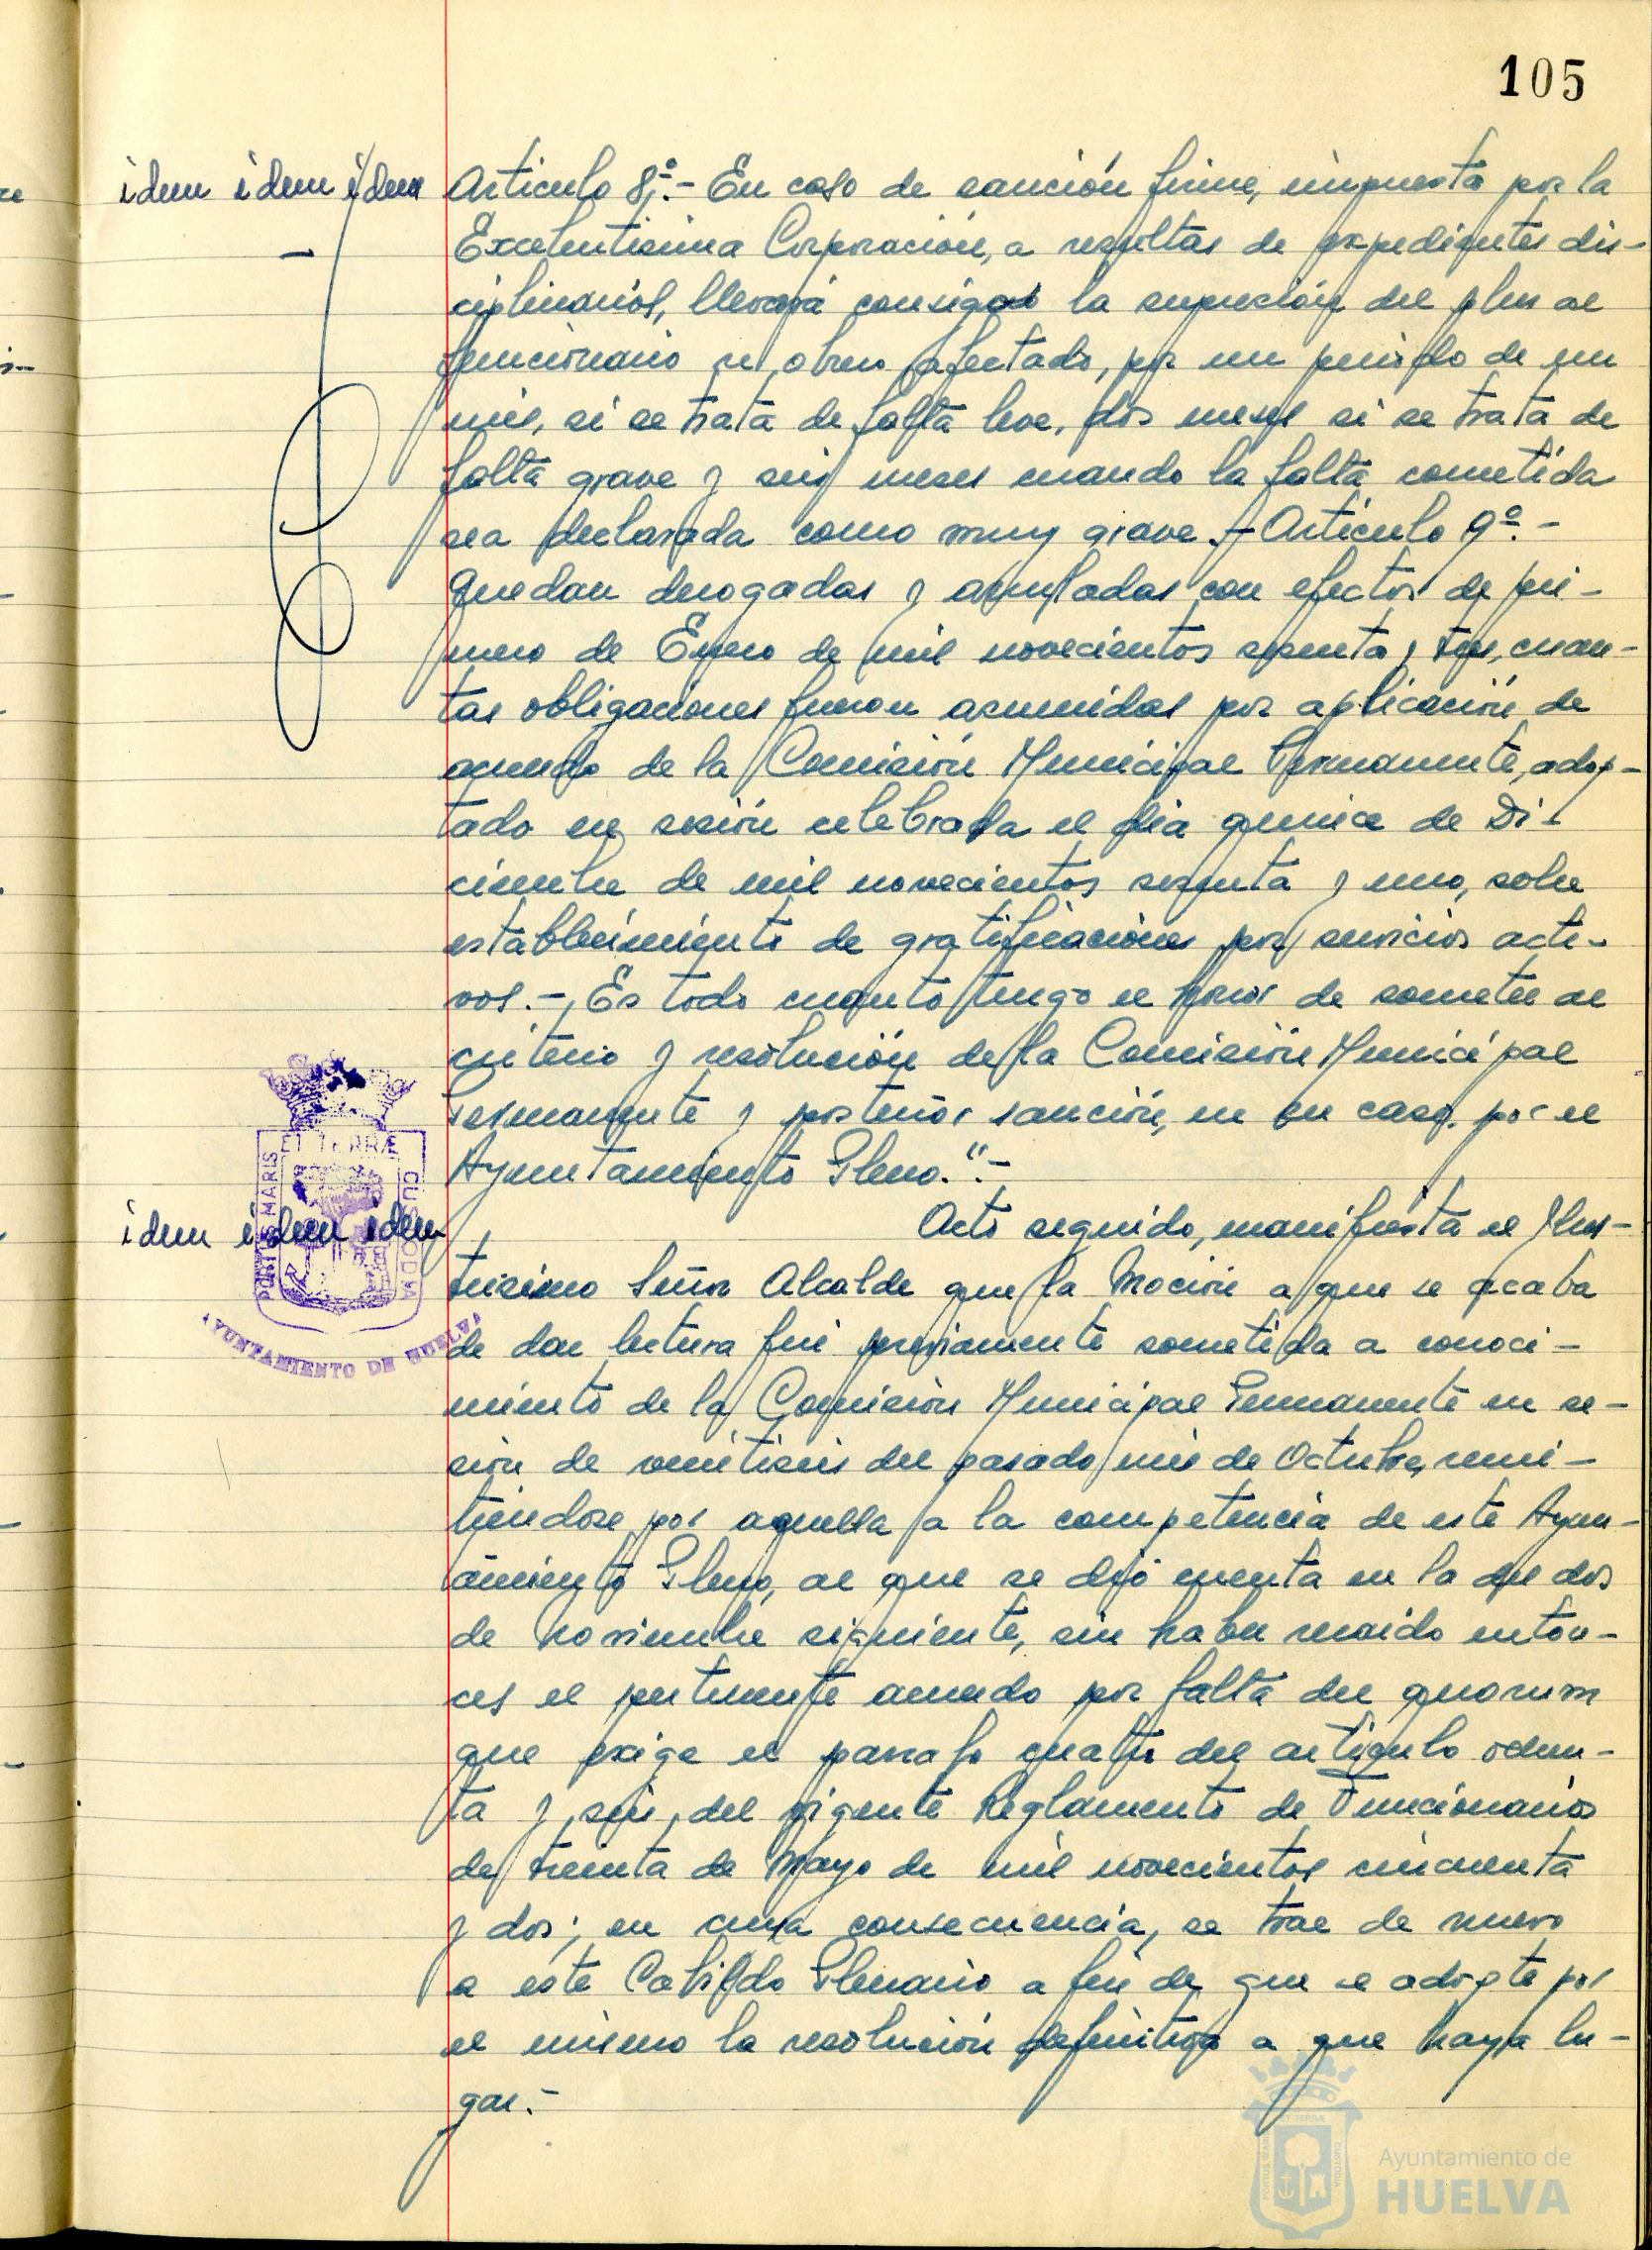 105
idem idem idem
Articulo 8º.- En caso de sanción firme, impuesta por la
Excelentisima Corporación, a resultas de expedientes dis-
ciplinarios, llevará consigo la supresión del plus al
funcionario u obrero afectado, por un periodo de un
mes, si se trata de falta leve, dos meses si se trata de
falta grave y seis meses cuando la falta cometida
sea declarada como muy grave.- Artículo 9º.-
Quedan derogadas y anuladas con efectos de pri-
mero de Enero de mil novecientos sesenta y tres, cuan-
tas obligaciones fueron asumidas por aplicación de
acuerdo de la Comisión Municipal Permanente, adop-
tado en sesión celebrada el dia quince de Di-
ciembre de mil novecientos sesenta y uno, sobre
establecimiento de gratificaciones por servicios acti-
vos.- Es todo cuanto tengo el honor de someter al
criterio y resolución de la Comisión Municipal
Permanente y posterior sanción, en su caso, por el
Ayuntamiento Pleno."-
idem idem idem
Acto seguido, manifiesta el Ilus-
trisimo Señor Alcalde que la Moción a que se acaba
de dar lectura fué previamente sometida a conoci-
miento de la Comisión Municipal Permanente en se-
sión de veintiseis del pasado mes de Octubre, remi-
tiendose por aquella a la competencia de este Ayun-
tamiento Pleno, al que se dió cuenta en la de dos
de Noviembre siguiente, sin haber recaido enton-
ces el pertinente acuerdo por falta del quorum
que exige el parrafo cuarto del artículo ochen-
ta y seis del vigente Reglamento de Funcionarios
de treinta de Mayo de mil novecientos cincuenta
y dos; en cuya consecuencia, se trae de nuevo
a este Cabildo Plenario a fin de que se adopte por
el mismo la resolución definitiva a que haya lu-
gar.-
PORTUS MARIS ET TERRÆ CUSTODIA
AYUNTAMIENTO DE HUELVA
Ayuntamiento de
HUELVA